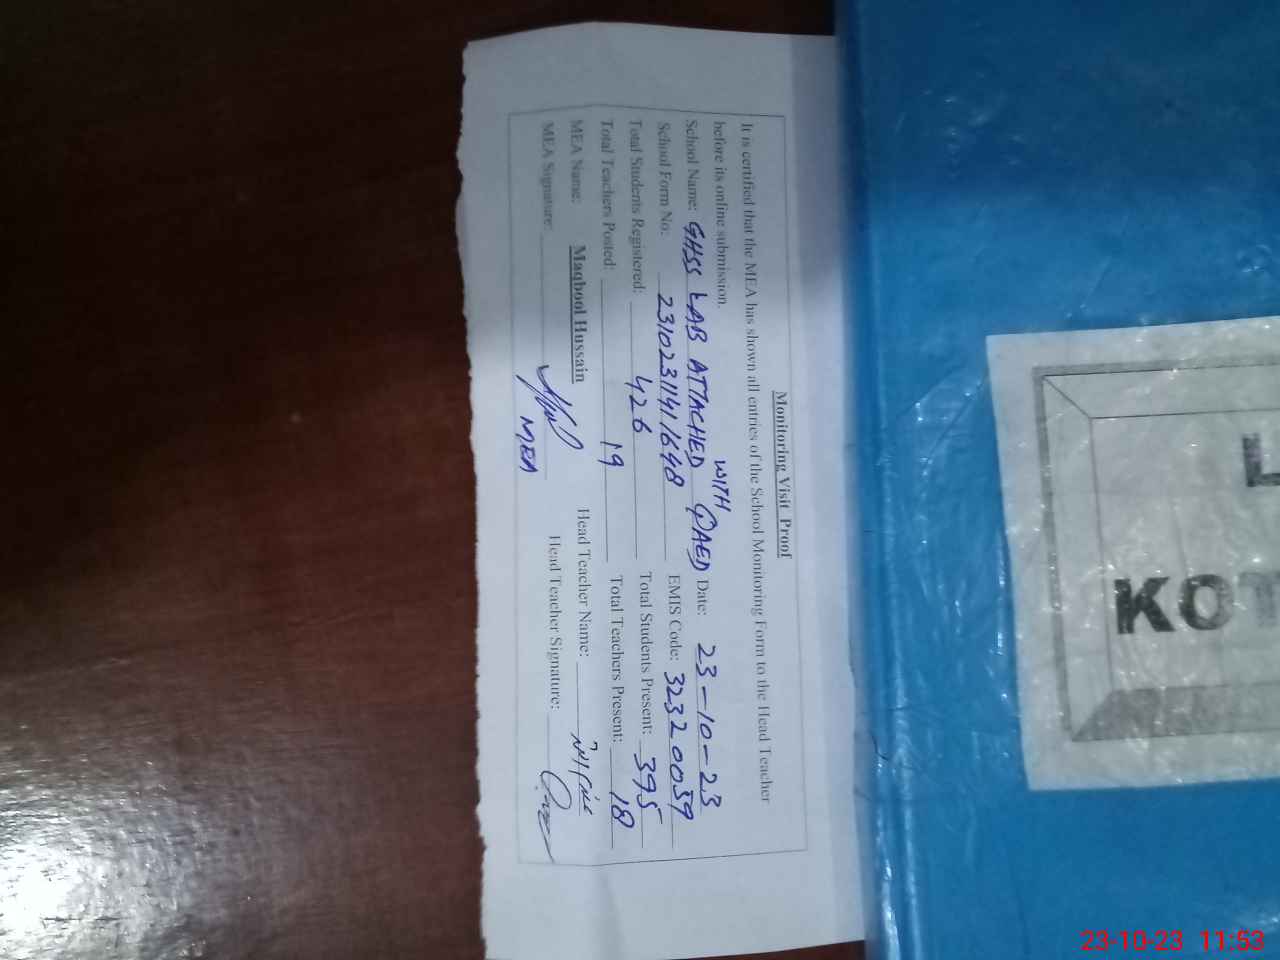 Monitoring Visit Proof
It is certified that the MEA has shown all entries of the School Monitoring Form to the Head Teacher
before its online submission.
School Name: GHSS LAB ATTACHED WITH QAED Date: 23-10-23
School Form No: 2310231141648 EMIS Code: 32320059
Total Students Registered: 426 Total Students Present: 395
Total Teachers Posted: 19 Total Teachers Present: 18
MEA Name: Maqbool Hussain Head Teacher Name:
MEA Signature: MEA Head Teacher Signature:
L
KOT
23-10-23 11:53